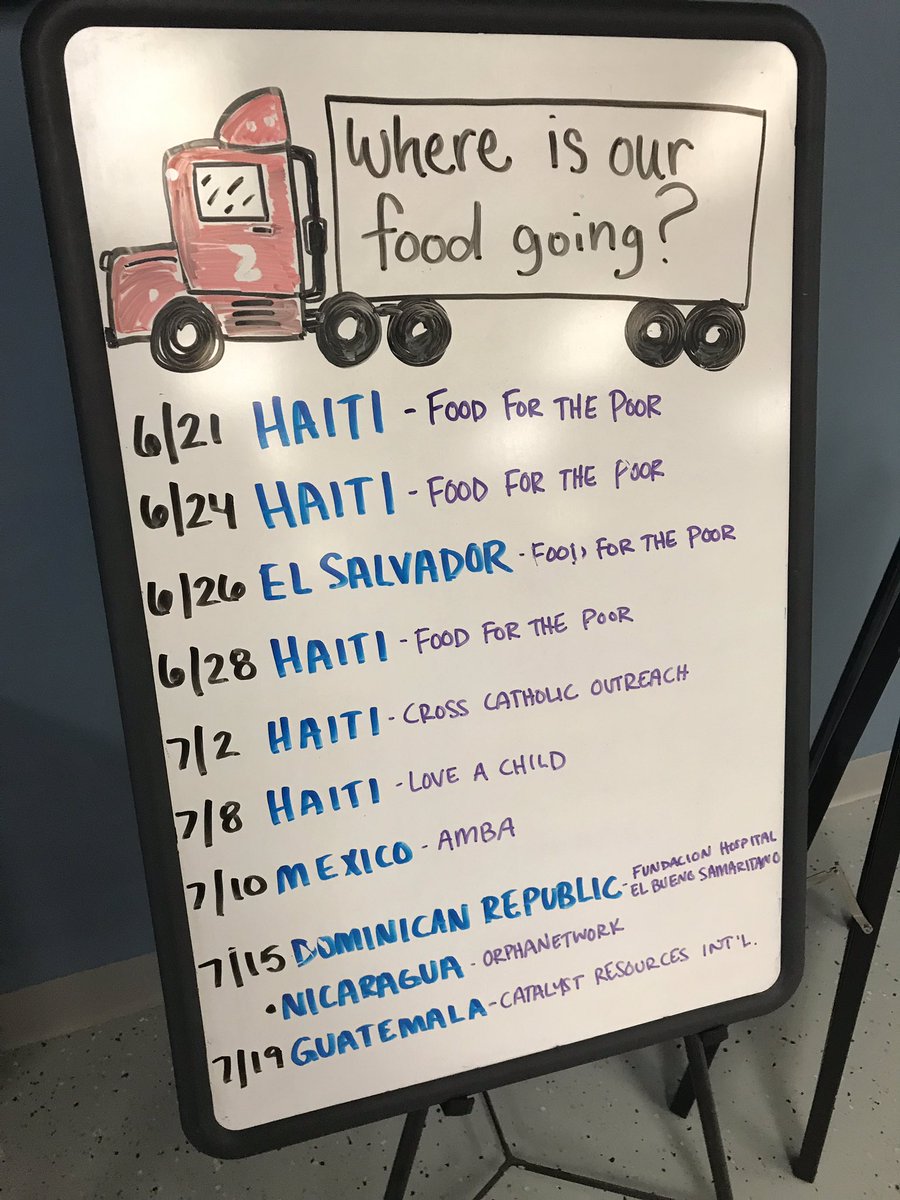 Where is our
food going?
6/21 HAITI - FOOD FOR THE POOR
6/24 HAITI - FOOD FOR THE POOR
6/26 EL SALVADOR - FOOD FOR THE POOR
6/28 HAITI - FOOD FOR THE POOR
7/2 HAITI - CROSS CATHOLIC OUTREACH
7/8 HAITI - LOVE A CHILD
7/10 MEXICO - AMBA
7/15 DOMINICAN REPUBLIC - FUNDACION HOSPITAL
EL BUENO SAMARITANO
• NICARAGUA - ORPHANETWORK
7/19 GUATEMALA - CATALYST RESOURCES INT'L.